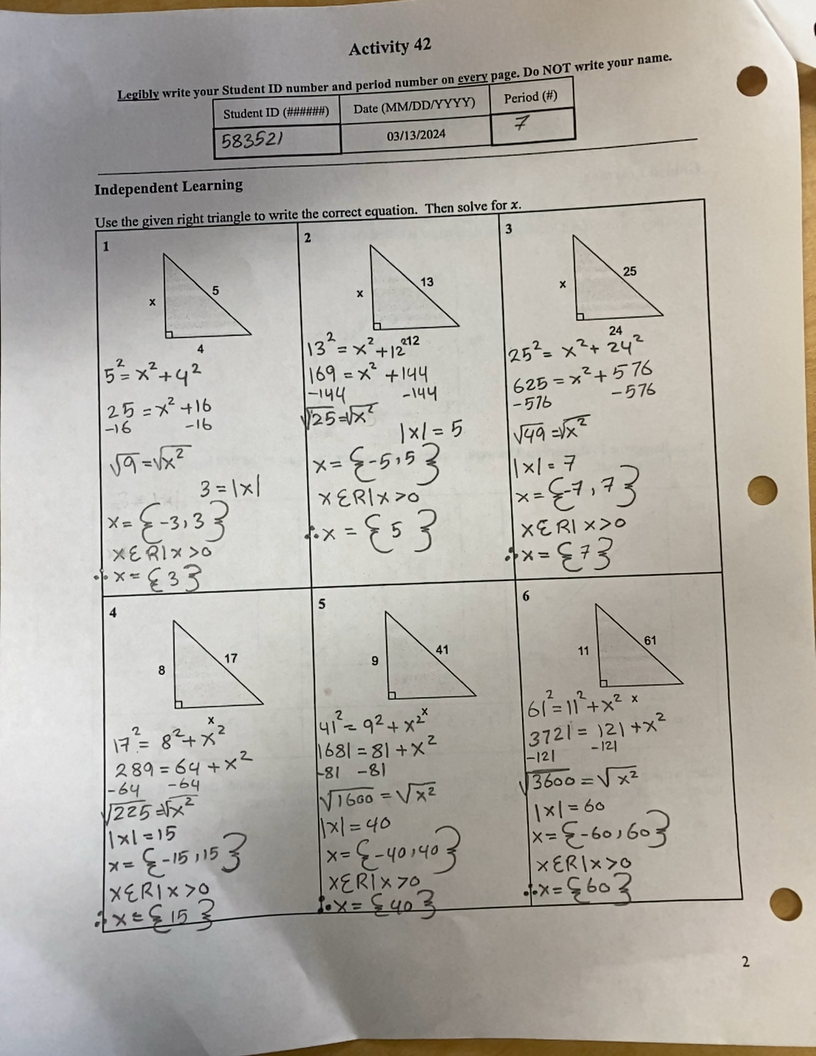 Activity 42
Legibly write your Student ID number and period number on every page. Do NOT write your name.
Student ID (######) Date (MM/DD/YYYY) Period (#)
583521 03/13/2024 7
Independent Learning
Use the given right triangle to write the correct equation. Then solve for x.
1
x 5
4
5² = x² + 4²
25 = x² + 16
-16 -16
√9 = √x²
3 = |x|
x = {-3, 3}
xƐR| x > 0
∴ x = {3}
2
x 13
12
13² = x² + 12²
169 = x² + 144
-144 -144
√25 = √x²
|x| = 5
x = {-5, 5}
xƐR| x > 0
∴ x = {5}
3
x 25
24
25² = x² + 24²
625 = x² + 576
-576 -576
√49 = √x²
|x| = 7
x = {-7, 7}
xƐR| x > 0
∴ x = {7}
4
8 17
x
17² = 8² + x²
289 = 64 + x²
-64 -64
√225 = √x²
|x| = 15
x = {-15, 15}
xƐR| x > 0
∴ x = {15}
5
9 41
x
41² = 9² + x²
1681 = 81 + x²
-81 -81
√1600 = √x²
|x| = 40
x = {-40, 40}
xƐR| x > 0
∴ x = {40}
6
11 61
x
61² = 11² + x²
3721 = 121 + x²
-121 -121
√3600 = √x²
|x| = 60
x = {-60, 60}
xƐR| x > 0
∴ x = {60}
2